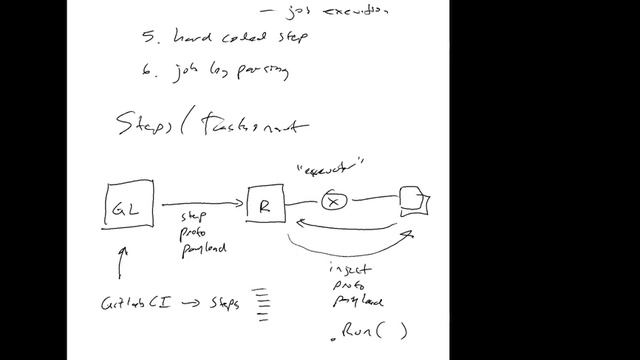 — job execution
5. hard coded step
6. job log parsing
Steps /
"executor"
GL
R
X
step
proto
payload
inject
proto
payload
GitLab CI → steps
.Run( )